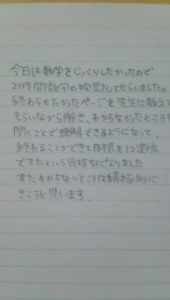 今日は数学をじっくりしたかったので
2時間数学の授業をしてもらいました。
終わらせたかったページを先生に教えて
もらいながら解き、わからなかったところを
聞くことで理解できるようになって、
終わることができて目標を1つ達成
できたという気持ちになりました
またわからないところは積極的に
きこうと思います。